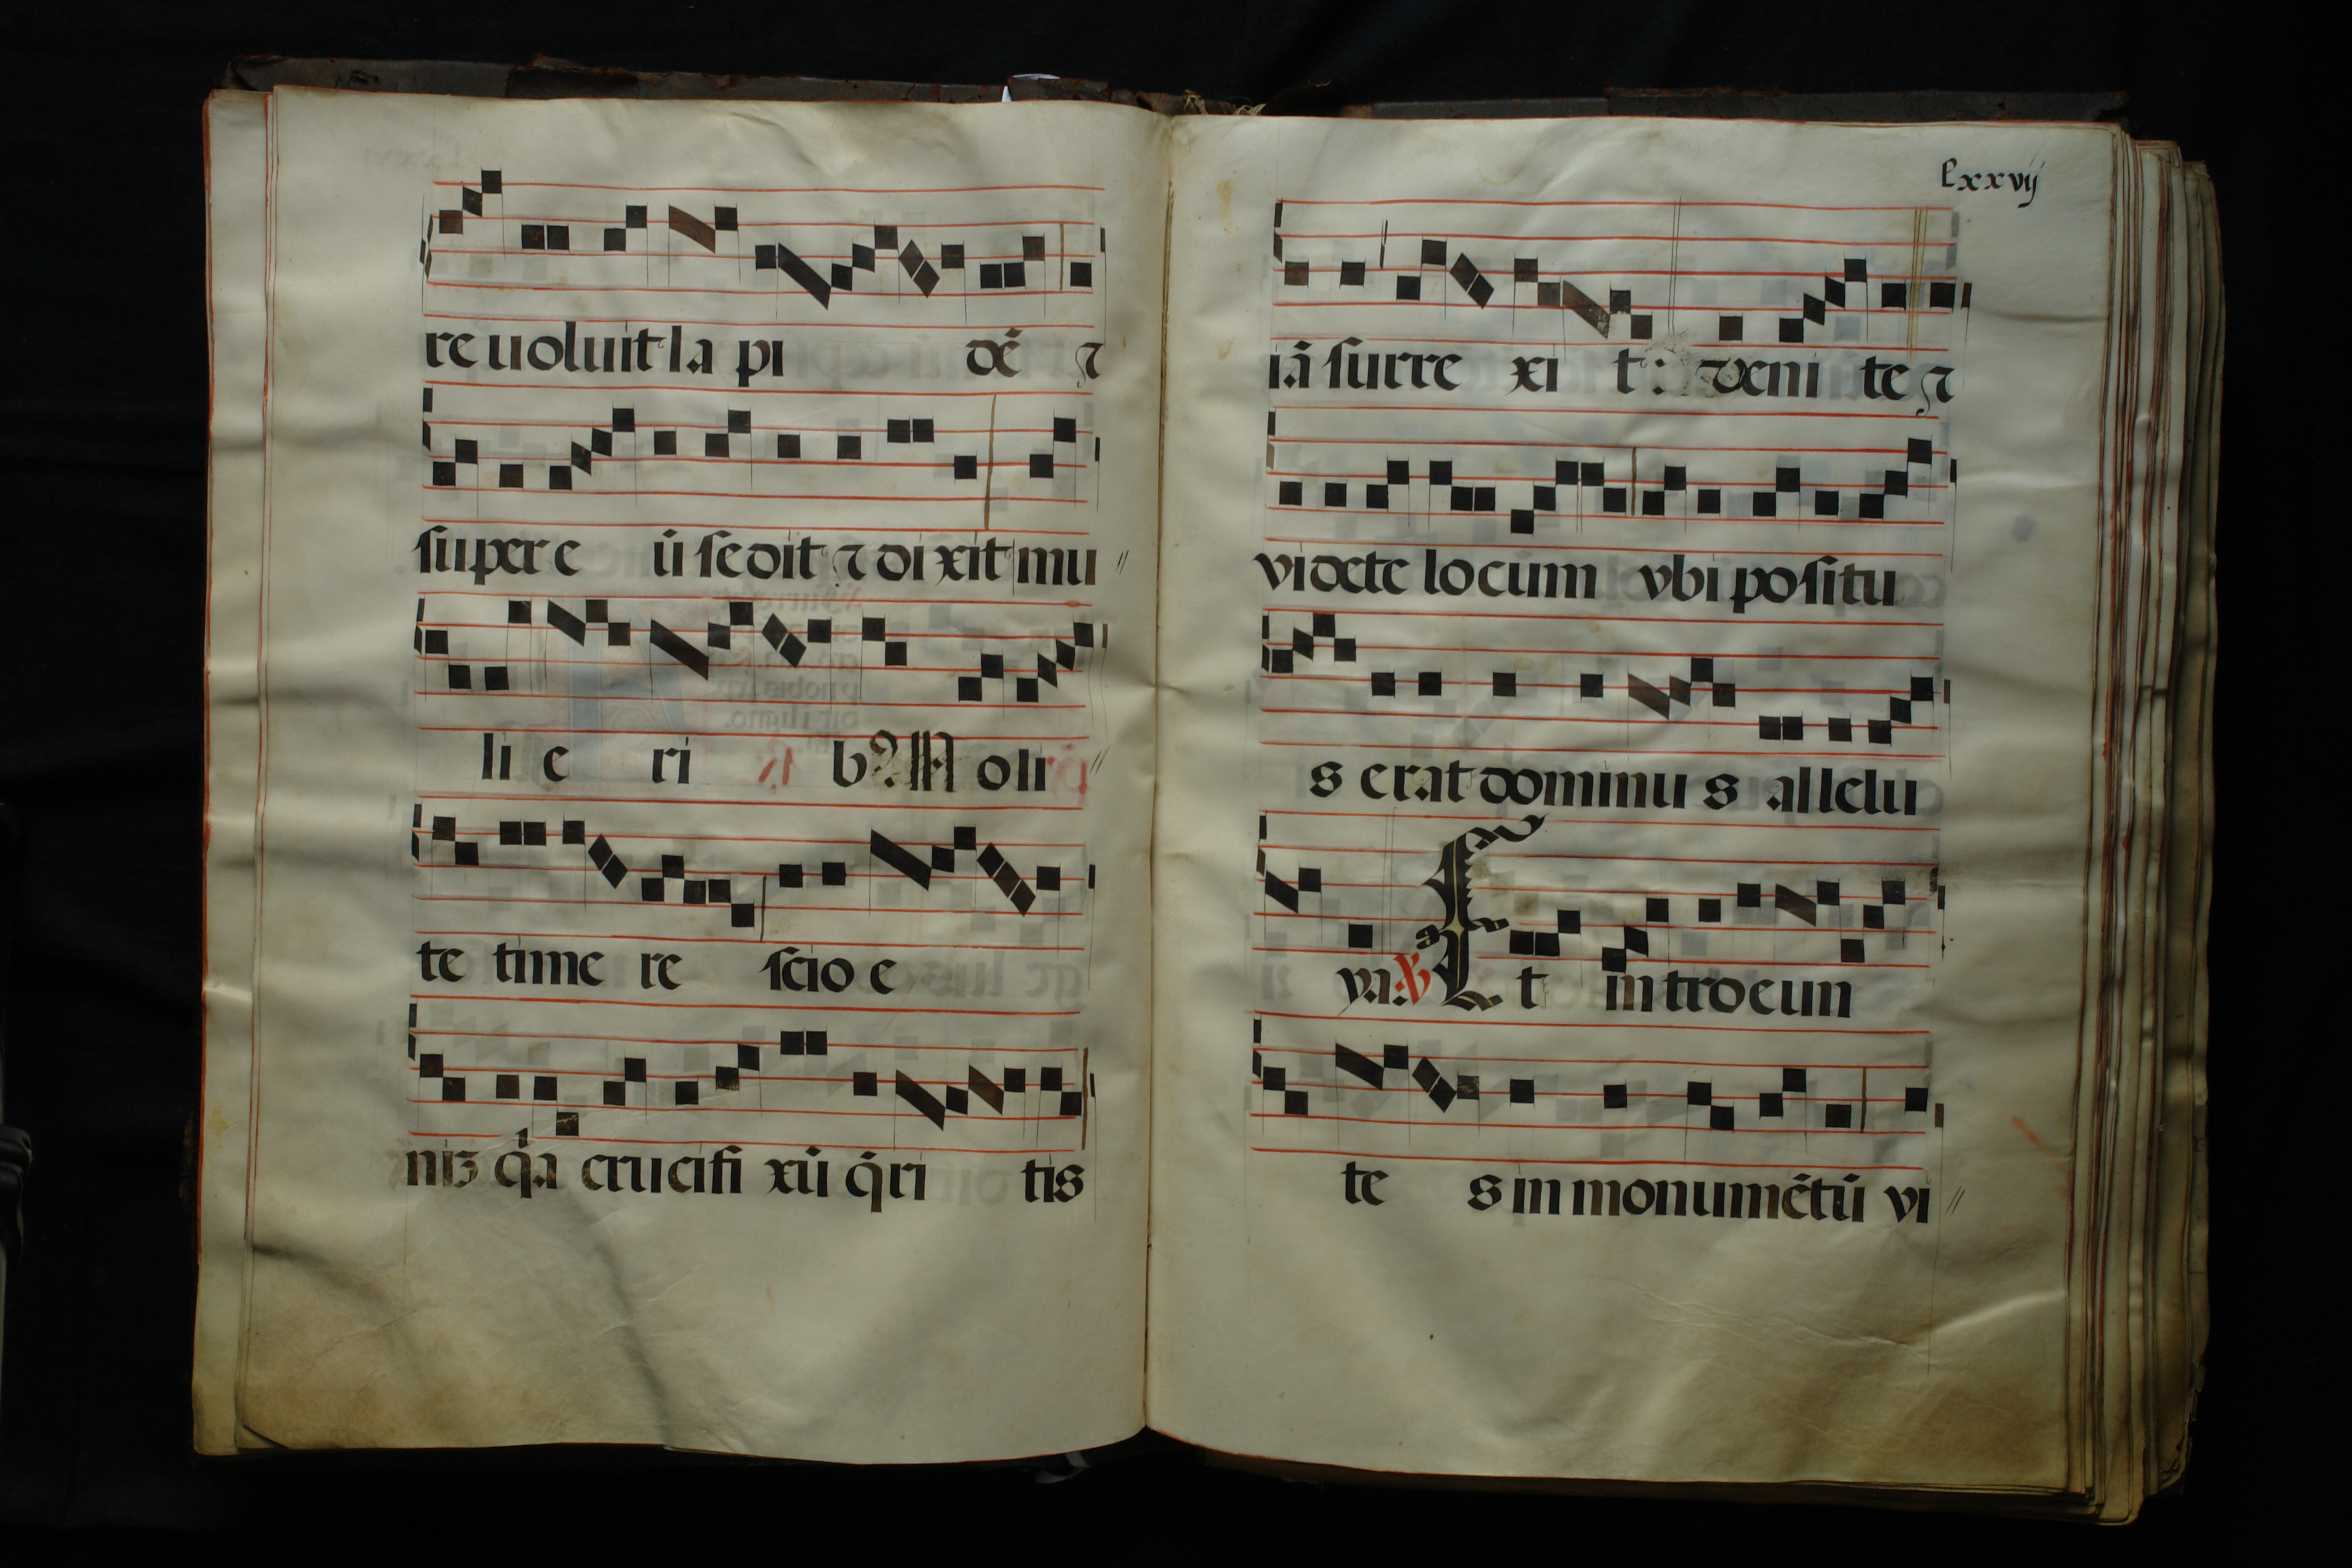 re uoluit la pi dē ⁊
super e ū sedit ⁊ di xit mu //
li e ri bꝰ. N oli //
te time re scio e
niꝫ qͥa crucifi xū q̄ri tis
Lxxvij
iā surre xi t : veni te ⁊
videte locum vbi positu
s erat dominu s allelu
ya. ℣ E t introeun
te s in monumētū vi //